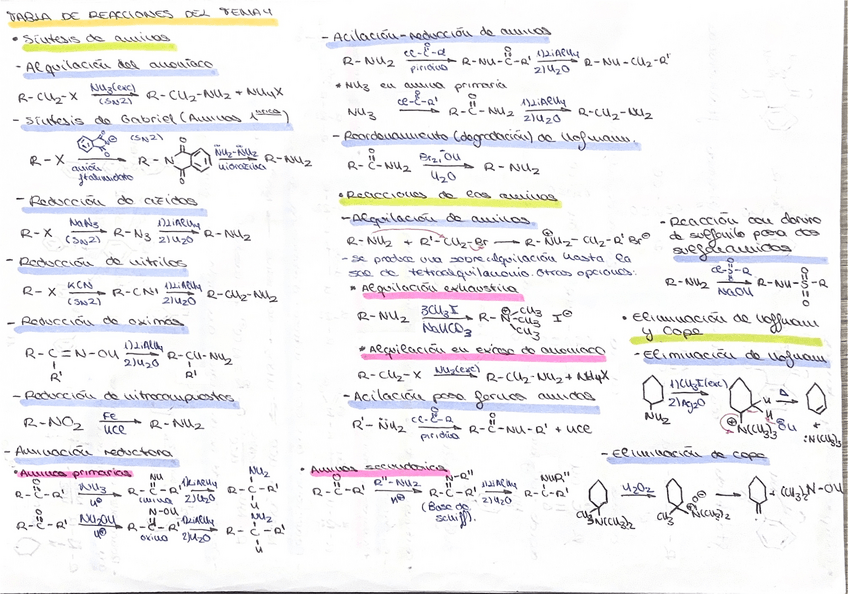 TABLA DE REACCIONES DEL TEMA 4
• Síntesis de aminas
- Alquilación del amoníaco
R-CH2-X NH3(exc) (SN2) R-CH2-NH2 + NH4X
- Síntesis de Gabriel (Aminas 1arias)
R-X (SN2) anión ftalimidato R-N NH2-NH2 hidrazina R-NH2
- Reducción de azidas
R-X NaN3 (SN2) R-N3 1) LiAlH4 2) H2O R-NH2
- Reducción de nitrilos
R-X KCN (SN2) R-CN 1) LiAlH4 2) H2O R-CH2-NH2
- Reducción de oximas
R-C=N-OH 1) LiAlH4 2) H2O R-CH-NH2
R' R'
- Reducción de nitrocompuestos
R-NO2 Fe HCl R-NH2
- Aminación reductora
• Aminas primarias
O NH NH2
R-C-R' NH3 H⊕ R-C-R' (imina) 1) LiAlH4 2) H2O R-C-R'
H
O N-OH NH2
R-C-R' NH2OH H⊕ R-C-R' oxima 1) LiAlH4 2) H2O R-C-R'
H
• Aminas secundarias
O N-R'' NHR''
R-C-R' R''-NH2 H⊕ R-C-R' 1) LiAlH4 2) H2O R-C-R'
(Base de schiff).
- Acilación-reducción de aminas
R-NH2 Cl-C-R' piridina R-NH-C-R' 1) LiAlH4 2) H2O R-NH-CH2-R'
* NH3 en amina primaria
NH3 Cl-C-R' R-C-NH2 1) LiAlH4 2) H2O R-CH2-NH2
- Reordenamiento (degradación) de Hofmann.
R-C-NH2 Br2, OH H2O R-NH2
• Reacciones de las aminas
- Alquilación de aminas.
R-NH2 + R'-CH2-Br R-NH2-CH2-R' Br⊖
- Se produce una sobrealquilación hasta la
sal de tetraalquilamonio. Otras opciones:
* Alquilación exhaustiva
R-NH2 3CH3I NaHCO3 R-N CH3 CH3 CH3 I⊖
* Alquilación en exceso de amoniaco
R-CH2-X NH3(exc) R-CH2-NH2 + NH4X
- Acilación para formar amidas
R'-NH2 Cl-C-R piridina R-C-NH-R' + HCl
- Reacción con cloruro
de sulfonilo para dar
sulfonamidas
R-NH2 Cl-S-R NaOH R-NH-S-R
• Eliminación de Hoffmann
y Cope
- Eliminación de Hofmann
NH2 1) CH3I(exc) 2) Ag2O H H N(CH3)3 ⊖OH Δ + :N(CH3)3
- Eliminación de cope
CH3 N(CH3)2 H2O2 CH3 N(CH3)2 O⊖ + (CH3)2N-OH